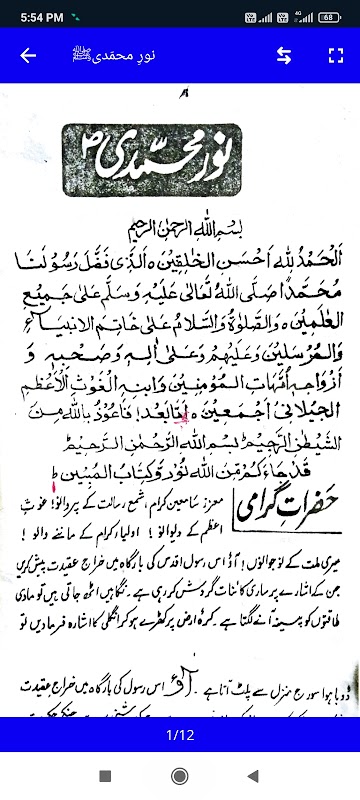 5:54 PM
4G
68
نورِ محمّدی ﷺ
نور محمّدی ؐ
بِسْمِ اللهِ الرحمٰنِ الرحیم
اَلْحَمْدُ لِلّٰهِ اَحْسَنِ الْخٰلِقِيْنَ ہ اَلَّذِیْ فَضَّلَ رَسُوْلَنَا
مُحَمَّدًا صَلَّی اللهُ تَعَالٰی عَلَيْهِ وَسَلَّمَ عَلٰی جَمِيْعِ
الْعٰلَمِيْنَ ہ وَالصَّلٰوةُ وَالسَّلَامُ عَلٰی خَاتِمِ الْاَنْبِيَاءِ
وَالْمُرْسَلِيْنَ وَعَلَيْهِمْ وَعَلٰی اٰلِهٖ وَصَحْبِهٖ وَ
اَزْوَاجِهٖ اُمَّهَاتِ الْمُؤْمِنِيْنَ وَابْنِهِ الْغَوْثِ الْاَعْظَمِ
الْجِيْلَانِیْ اَجْمَعِيْنَ ہ اَمَّا بَعْدُ! فَاَعُوْذُ بِاللهِ مِنَ
الشَّيْطٰنِ الرَّجِيْمِ ط بِسْمِ اللهِ الرَّحْمٰنِ الرَّحِيْمِ ط
قَدْ جَاءَكُمْ مِّنَ اللهِ نُوْرٌ وَّكِتَابٌ الْمُبِيْن ط
حَضراتِ گرامی
معزز سامعین کرام، شمع رسالت کے پروانو! غوثِ
اعظم کے دیوانو! اولیاء کرام کے ماننے والو!
میری ملت کے نوجوانوں! آؤ اس رسول اقدس کی بارگاہ میں خراج عقیدت پیش کریں
جن کے اشارے پر ساری کائنات گردش کر رہی ہے۔ نگاہیں اٹھ جاتی ہیں تو مادی
طاقتوں کو پسینہ آنے لگتا ہے۔ کرہ ارض پر کھڑے ہو کر انگلی کا اشارہ فرمادیں تو
ڈوبا ہوا سورج منزل سے پلٹ آتا ہے۔ آؤ اس رسول کی بارگاہ میں خراج عقیدت
1/12